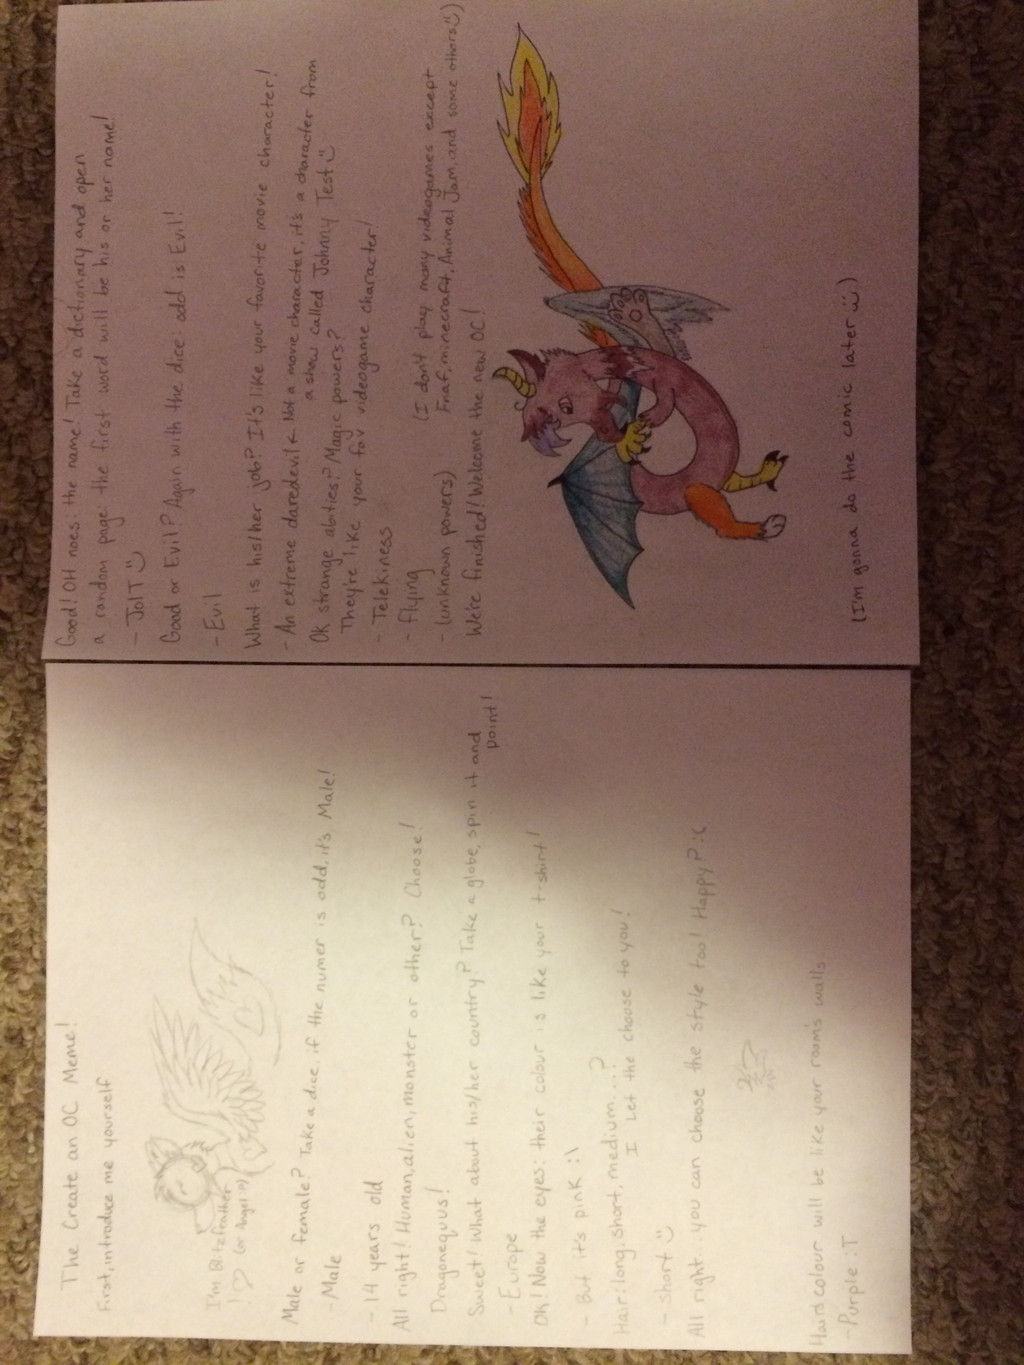 The Create an OC Meme!
First, introduce me yourself
I'm Blitzfeather
(or Angel
Male or female? Take a dice. if the numer is odd, it's Male!
- Male
- 14 years old
All right! Human, alien, monster or other? Choose!
Dragonequus!
Sweet! What about his/her country? Take a globe, spin it and
point!
- Europe
Oh! Now the eyes: their colour is like your t-shirt!
- But it's pink :\
Hair: long, short, medium...?
I let the choose to you!
- Short :)
All right... you can choose the style too! Happy? :(
Hairs colour will be like your room's walls
- Purple :T
Good! OH noes: the name! Take a dictionary and open
a random page: the first word will be his or her name!
- JolT :)
Good or Evil? Again with the dice: odd is Evil!
- Evil
What is his/her job? It's like your favorite movie character!
- An extreme daredevil ← Not a movie character, it's a character from
a show called Johnny Test :)
Ok strange abities? Magic powers?
They're like your fav videogame character!
- Telekiness
- Flying
(I don't play many videogames except
- (unknown powers)
Fnaf, minecraft, Animal Jam, and some others :))
We're finished! Welcome the new OC!
(I'm gonna do the comic later :))